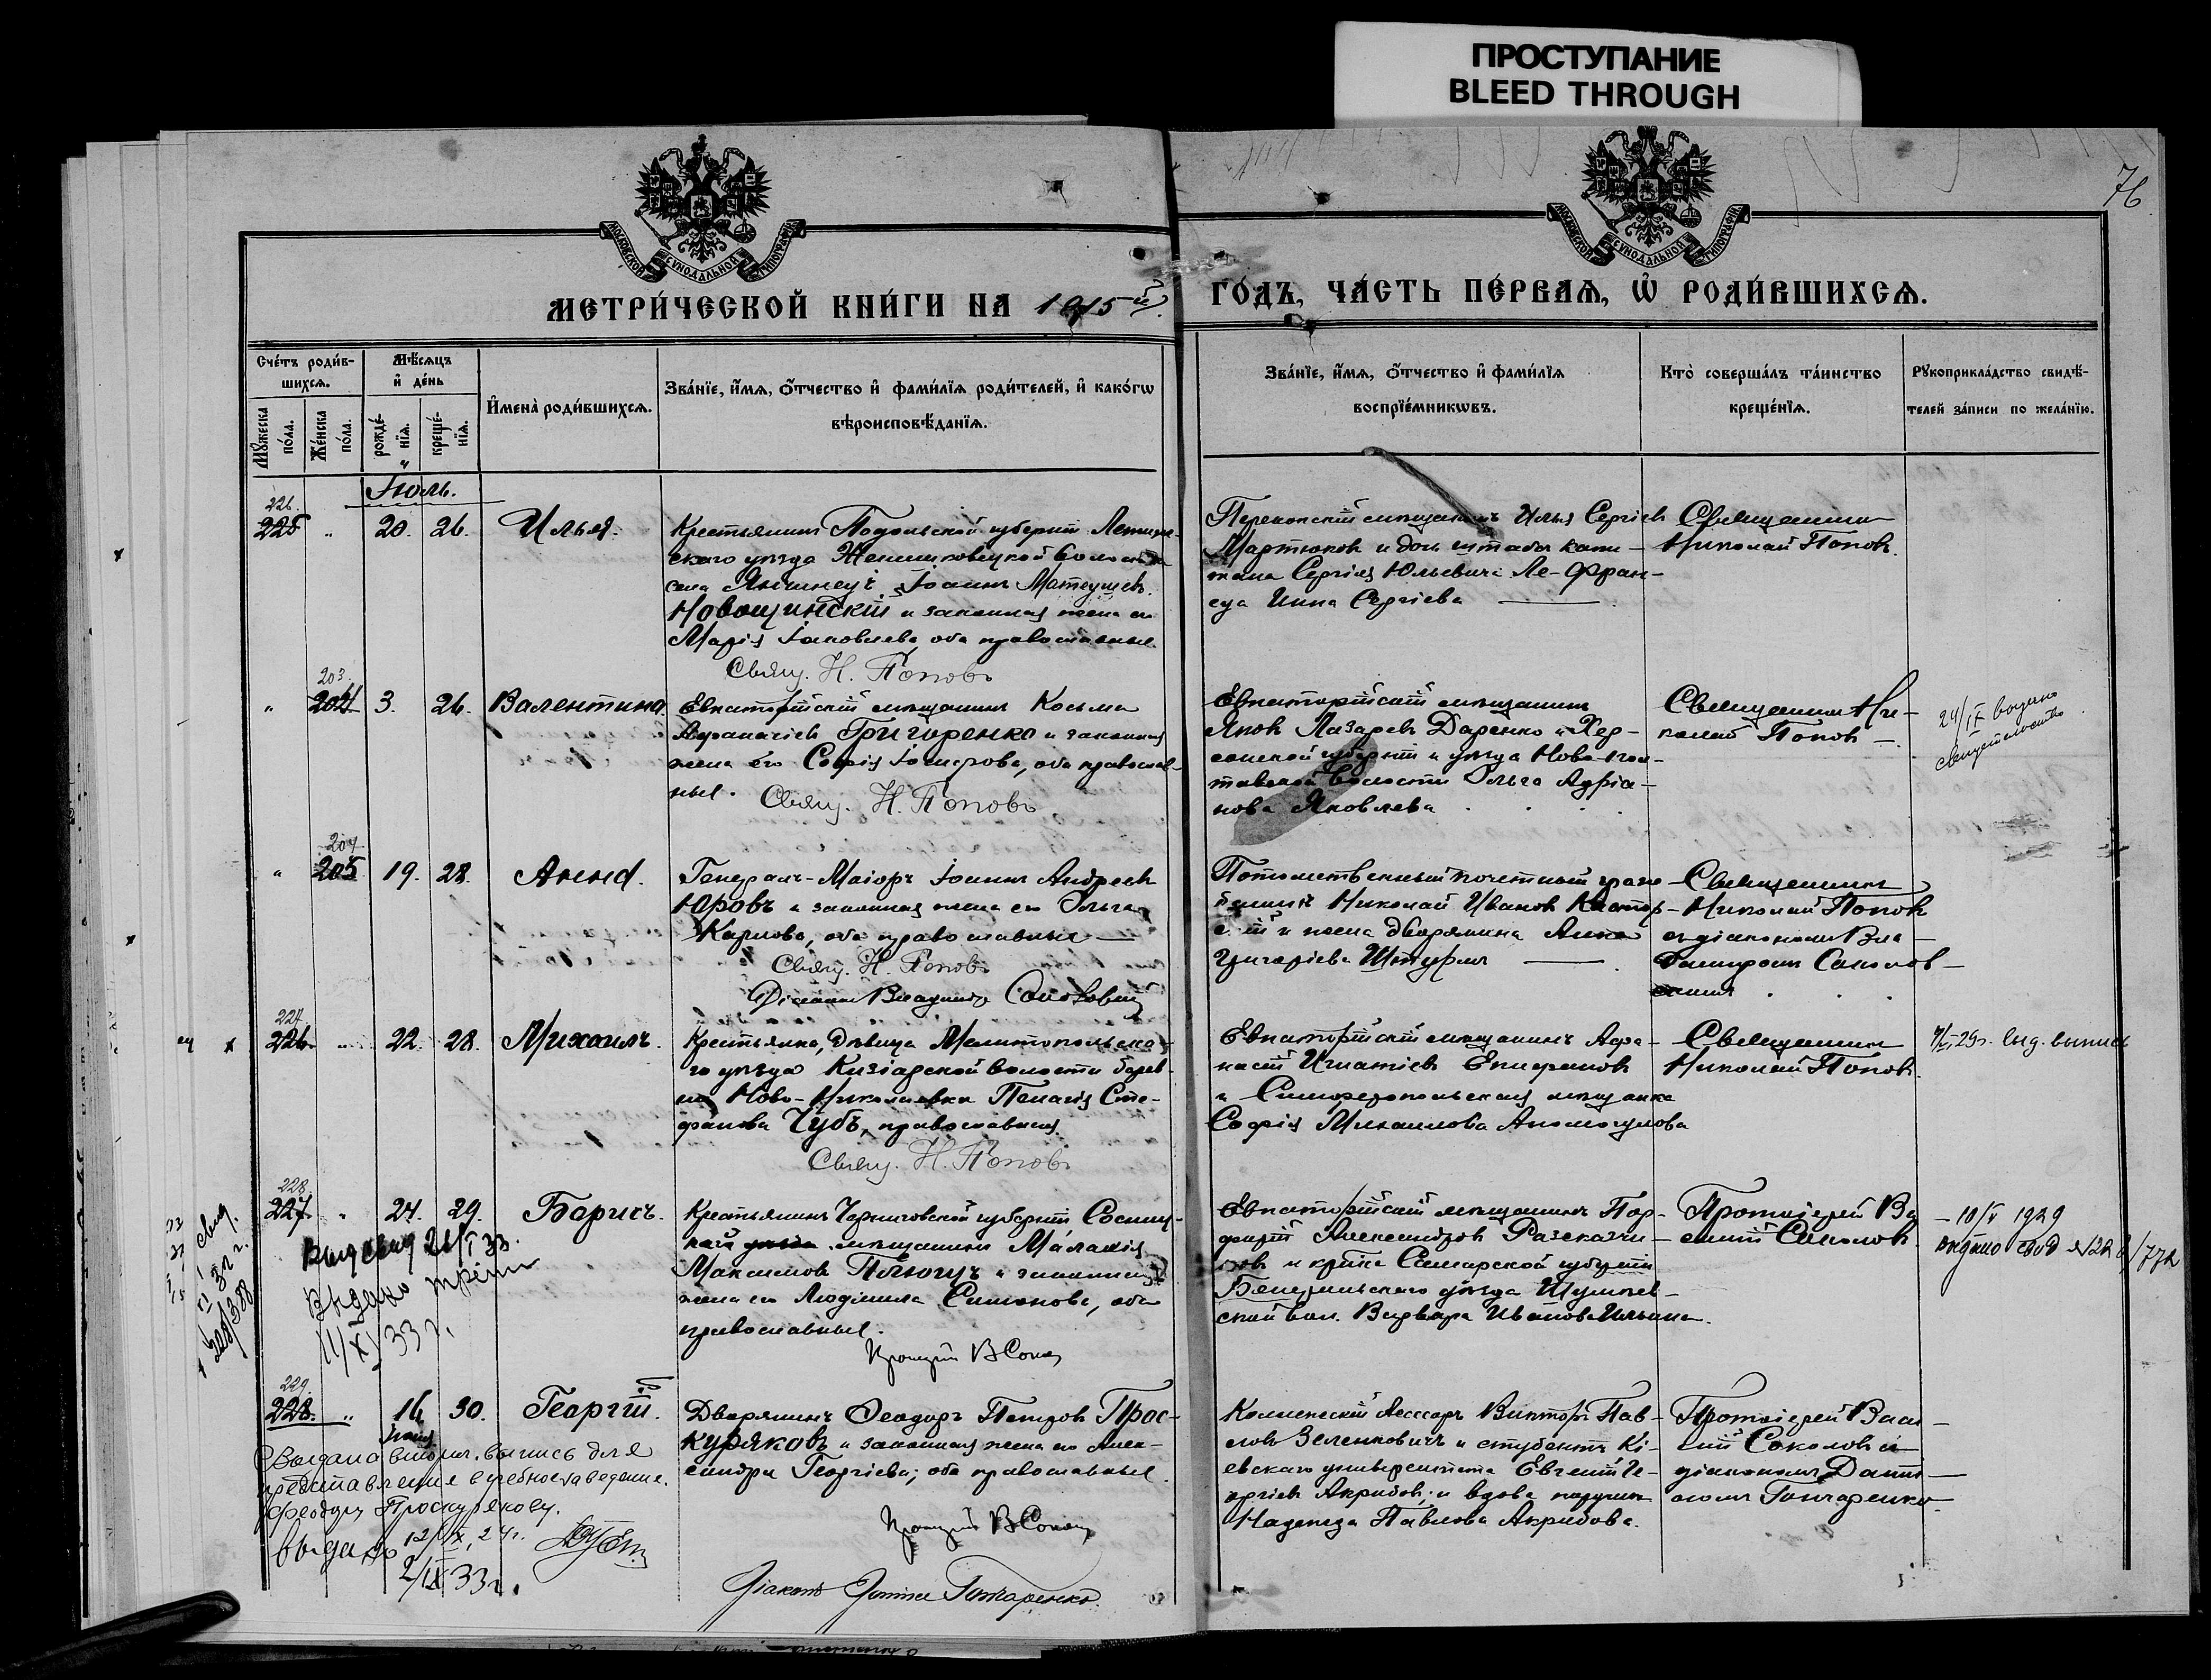 ПРОСТУПАНИЕ
BLEED THROUGH
76
МОСКОВСКОЙ СѴНОДАЛЬНОЙ ТИПОГРАФІИ
МОСКОВСКОЙ СѴНОДАЛЬНОЙ ТИПОГРАФІИ
МЕТРИ́ЧЕСКОЙ КНИ́ГИ НА 1915й
ГО́ДЪ, ЧА́СТЬ ПЕ́РВАѦ, Ѡ҆ РОДИ́ВШИХСѦ.
Сче́тъ роди́в-
шихсѧ.
Мꙋ́жеска по́ла.
Же́нска по́ла.
Мѣ́сѧцъ
и҆ де́нь
рожде́-
нїѧ.
креще́-
нїѧ.
И҆мена̀ роди́вшихсѧ.
Зва́нїе, и҆́мѧ, ѻ҆́тчество и҆ фами́лїѧ роди́телей, и҆ како́гѡ
вѣроисповѣ́данїѧ.
Зва́нїе, и҆́мѧ, ѻ҆́тчество и҆ фами́лїѧ
воспрїе́мникѡвъ.
Кто̀ соверша́лъ та́инство
креще́нїѧ.
Рꙋкоприкла́дство свидѣ́-
телей за́писи по жела́нїю.
Іюль.
226
225 " 20. 26. Илья.
Крестьянинъ Подольской губерніи Летиче-
скаго уѣзда волости
села Іоаннъ Матеушевъ
Новощинскій и законная жена его
Марія Іаковлева, оба православные.
Свящ. Н. Поповъ
Перекопскій мѣщанинъ Илья Сергіевъ
Мартюковъ и дочь штабсъ капи-
тана Сергія Юльевича Ле-Фран-
суа Инна Сергіева
Священникъ
Николай Поповъ.
203.
" 204 3. 26. Валентина.
Евпаторійскій мѣщанинъ Косьма
Афанасіевъ Григоренко и законная
жена его Софія оба православ-
ные. Свящ. Н. Поповъ
Евпаторійскій мѣщанинъ
Яковъ Лазаревъ Даренко и Хер-
сонской губерніи и уѣзда Ново-пол-
тавской волости Ольга Адріа-
нова Яковлева
Священникъ Ни-
колай Поповъ
24/IX выдано
свидетельство
204
" 205 19. 28. Анна.
Генералъ-Маіоръ Іоаннъ Андреевъ
Юровъ и законная жена его Ольга
Карлова, оба православные
Свящ. Н. Поповъ
Діаконъ Владиміръ Соколовскій
Потомственный почетный граж-
данинъ Николай Ивановъ
и жена дворянина Анна
Григоріева Штурмъ
Священникъ
Николай Поповъ
съ діакономъ Вла-
диміромъ Соколов-
скимъ
227
226. " 22. 28. Михаилъ.
Крестьянка, дѣвица Мелитопольска-
го уѣзда Кизіарской волости дерев-
ни Ново-Николаевки Пелагія Сте-
фанова Чубъ, православная.
Свящ. Н. Поповъ
Евпаторійскій мѣщанинъ Афа-
насій Игнатіевъ Епифановъ
и Симферопольская мѣщанка
Софія Михаилова
Священникъ
Николай Поповъ.
29г. выд. выпись
228
227 " 24. 29. Борисъ.
Крестьянинъ Черниговской губерніи Сосниц-
мѣщанинъ Малахія
Максимовъ и законная
жена его Людмила Симонова, оба
православные.
Протоіерей В Сокол
Евпаторійскій мѣщанинъ Пор-
фирій Александровъ Разсказчи-
ковъ и кр-ка Самарской губерніи
уѣзда
ской вол. Варвара Иванова Ильина.
Протоіерей Ва
силій Соколовъ.
10/V 1929
выдано свид №228/772
свид.
Выд свид 26/I 33.
Выдано
11/XI 33 г.
229.
228. " 16 30. Георгій.
Дворянинъ Ѳеодоръ Петровъ Прос-
куряковъ и законная жена его Алек-
сандра Георгіева; оба православные.
Протоіерей В Сокол
Діаконъ Гончаренко.
Коллежскій Ассесоръ Викторъ Пав-
ловъ Зеленкевичъ и студентъ Кі-
евскаго университета Евгеній Ге-
оргіевъ Акрибовъ; и вдова поручика
Надежда Павлова Акрибова.
Протоіерей Васи-
лій Соколовъ съ
діакономъ
Гончаренко
Выдана вторич. выпись для
представления в учебное заведение.
Феодору Проскурякову.
выдано 12/IX, 24г.
2/IX 33г.